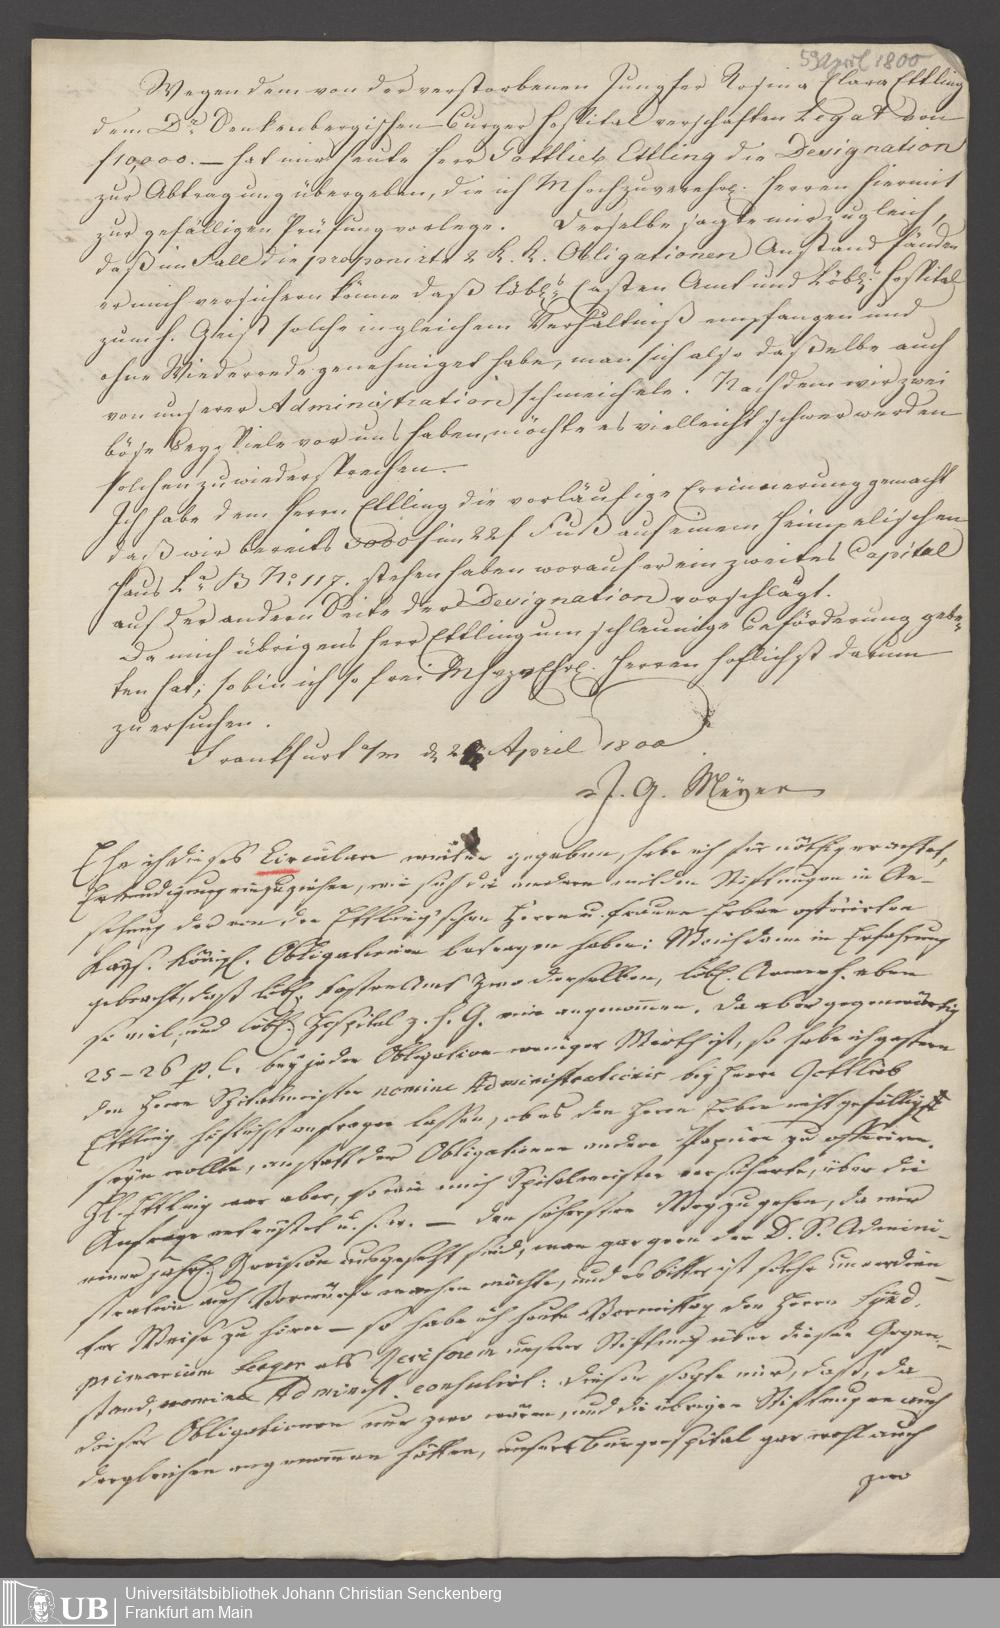 5 April 1800
Wegen dem von der verstorbenen Jungfer Rosina Clara Ettling
dem Dr. Senkenbergischen Burger hospital verschafften Legat von
f 10,000. — hat mir heute Herr Gottlieb Ettling die Designation
zur Abtragung übergeben, die ich Mhochzuverehr. Herren hiermit
zur gefälligen Prüfung vorlege. Derselbe sagte mir zugleich,
daß im Fall die proponirte 2 K. K. Obligationen Anstand fänden
er mich versichern könne daß löbl. Casten Amt und Löbl. hospital
zum h. Geist solche in gleichem Verhältniß empfangen und
ohne Wiederrede genehmiget habe, man sich also daßelbe auch
von unserer Administration schmeichele. Nachdem wir zwei
böse Beyspiele vor uns haben, möchte es vielleicht schwer werden
solchen zu wiedersprechen.
Ich habe dem Herrn Ettling die vorläufige Erinnerung gemacht
daß wir bereits 5000 f im 22 f Fuß auf einem Heimpelischen
Haus Lr. B No. 117. stehen haben worauf er ein zweites Capital
auf der andern Seite der Designation vorschlägt.
Da mich übrigens Herr Ettling um schleunige Beförderung gebe-
ten hat; so bin ich so frei Mhzv Ehr. Herren höflichst darum
zu ersuchen.
Frankfurt a/m d. April 1800
J. G. Meyer
Ehe ich dieses Circulare weiter gegeben, habe ich für nöthig erachtet,
Erkundigung einzuziehen, wie sich die andern milden Stiftungen in An-
sehung der von den Ettling'schen Herren u. Frauen Erben offerirten
Kays. Königl. Obligationen betragen haben: Wo ich dann in Erfahrung
gebracht, daß löbl. Kastenamt zwo derselben, löbl. Armenh. eben
so viel, und löbl. Hospital z. h. G. eine angenommen. Da aber gegenwärtig
25-26 p. C. bey jeder Obligation weniger Werth ist, so habe ich gestern
den Herrn Spitalmeister nomine Administrationis bey Herrn Gottlieb
Ettling höflichst anfragen lassen, ob es den Herrn Erben nicht gefällig
seyn wollte, anstatt der Obligationen andere Papiere zu offeriren.
H. Ettling war aber, so wie mich Spitalmeister versicherte, über die
Anfrage entrüstet u. s. w. — Den sichersten Weg zu gehen, da wir
einer jährl. Revision ausgesetzt sind, man gar gern der D. S. Admini-
stration auch Vorwürfe machen möchte, und es bitter ist solche unverdien-
ter Weise zu hören — so habe ich heute Vormittag den Herrn Synd.
primarium Seeger als Revisorem unsrer Stiftung über diesen Gegen-
stand, nomine Administ. consulirt: dieser sagte mir, daß, da
dieser Obligationen nur zwo wären, und die übrigen Stiftungen auch
dergleichen angenommen hätten, unser Bürgerspital gar wohl auch
zwo
UB
Universitätsbibliothek Johann Christian Senckenberg
Frankfurt am Main